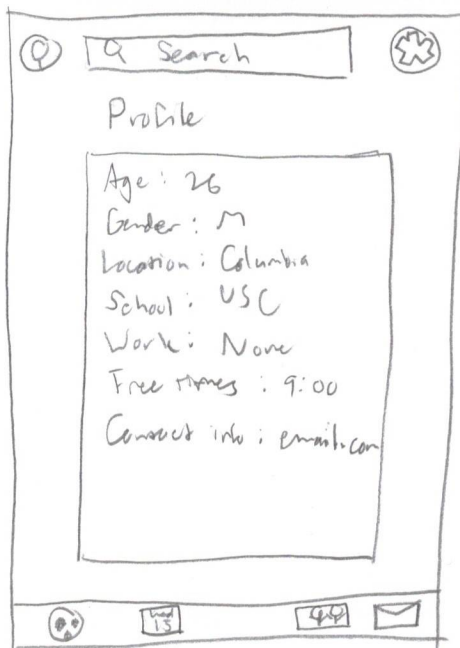 Search
Profile
Age: 26
Gender: M
Location: Columbia
School: USC
Work: None
Free times: 9:00
Contact info: email.com
Wed
15